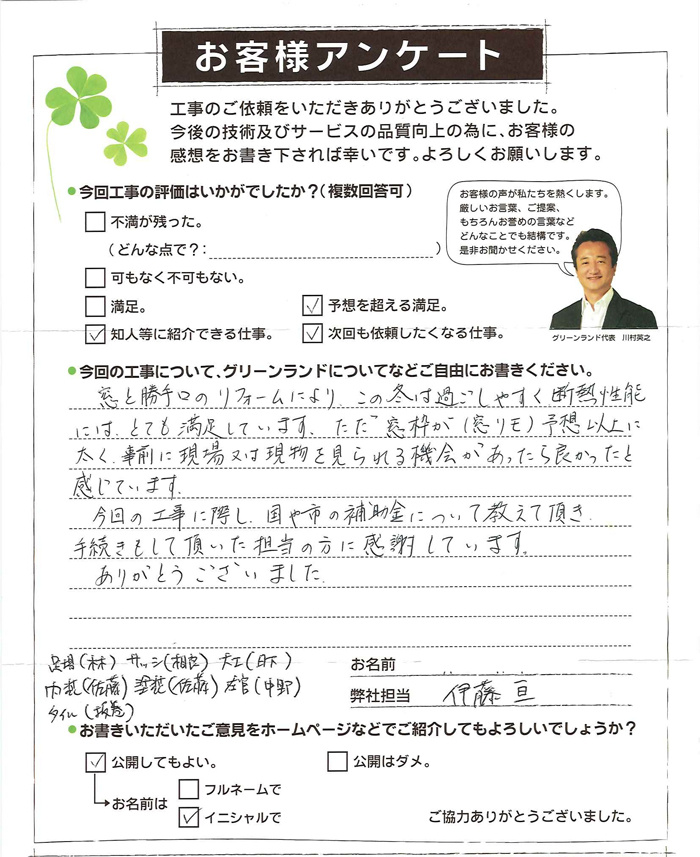 お客様アンケート
工事のご依頼をいただきありがとうございました。
今後の技術及びサービスの品質向上の為に、お客様の
感想をお書き下されば幸いです。よろしくお願いします。
今回工事の評価はいかがでしたか？（複数回答可）
不満が残った。
（どんな点で？：　）
可もなく不可もない。
満足。
予想を超える満足。
知人等に紹介できる仕事。
次回も依頼したくなる仕事。
お客様の声が私たちを熱くします。
厳しいお言葉、ご提案、
もちろんお誉めの言葉など
どんなことでも結構です。
是非お聞かせください。
グリーンランド代表　川村英之
今回の工事について、グリーンランドについてなどご自由にお書きください。
窓と勝手口のリフォームにより、この冬は過ごしやすく断熱性能
には、とても満足しています。ただ窓枠が（窓リモ）予想以上に
太く、事前に現場又は現物を見られる機会があったら良かったと
感じています。
今回の工事に際し、国や市の補助金について教えて頂き、
手続きをして頂いた担当の方に感謝しています。
ありがとうございました。
足場（林）サッシ（相良）大工（日下）
内装（佐藤）塗装（佐藤）左官（中野）
タイル（坂巻）
お名前
弊社担当　伊藤 亘
お書きいただいたご意見をホームページなどでご紹介してもよろしいでしょうか？
公開してもよい。
公開はダメ。
お名前は
フルネームで
イニシャルで
ご協力ありがとうございました。